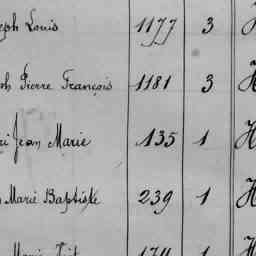 Louis 1177 3 H
Pierre François 1181 3 H
Jean Marie 135 1 H
Marie Baptiste 239 1 H
1